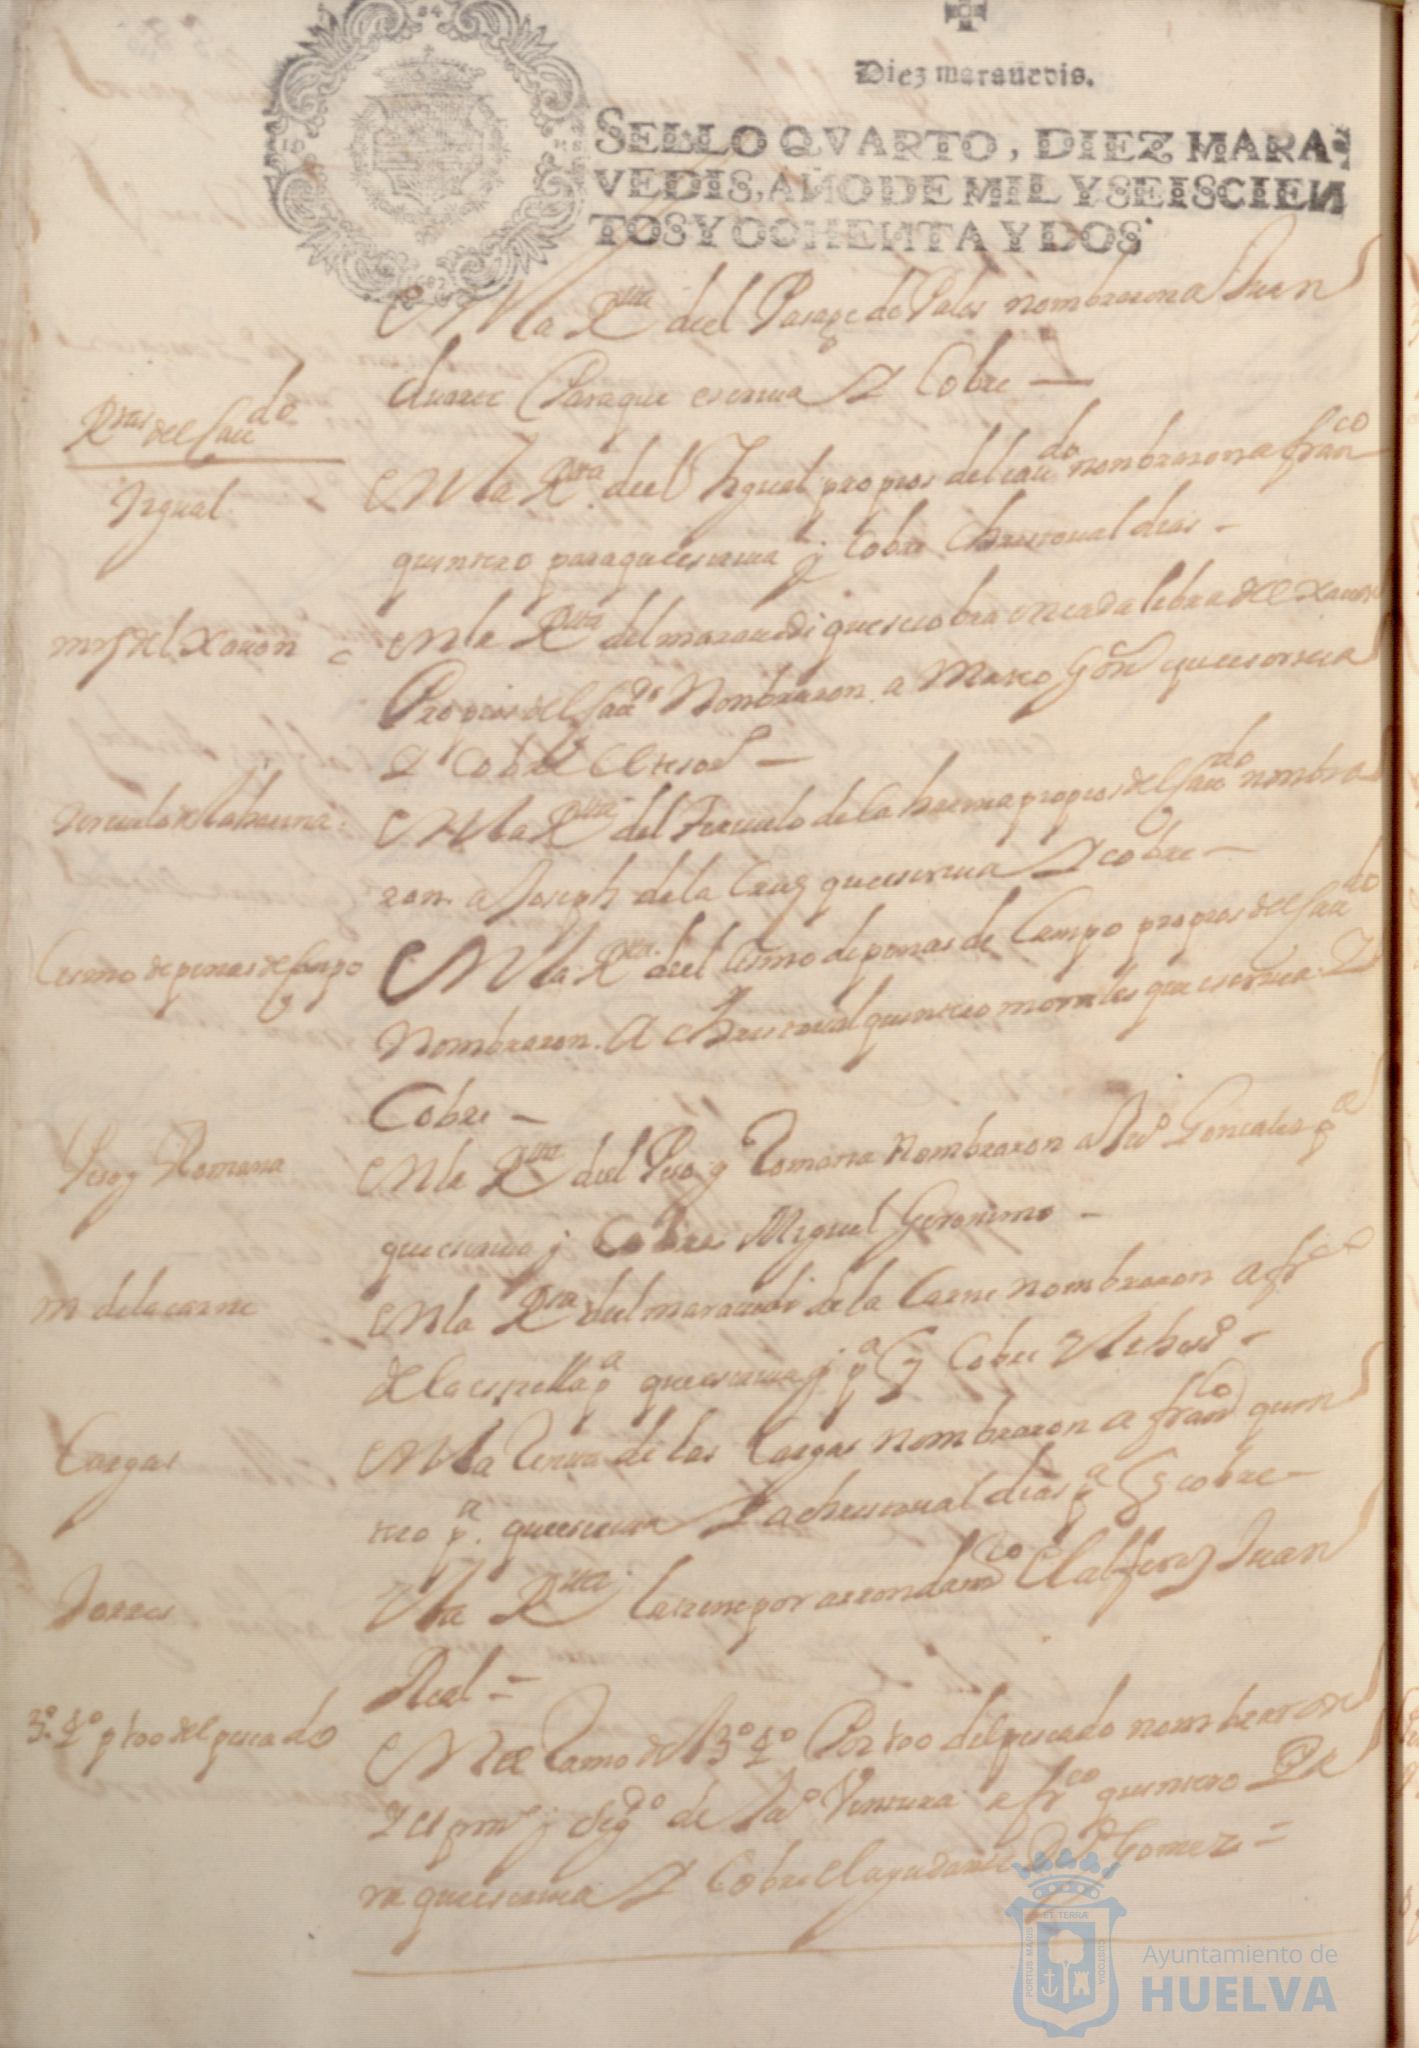 Diez marauedis.
SELLO QVARTO, DIEZ MARA-
VEDIS, AÑO DE MIL Y SEISCIEN
TOS Y OCHENTA Y DOS.
En la Rta del Pasage de Palos nombraron a Juan
Suarez Para que escriua Y Cobre —
Rtas del Caudo
Jzgual
En la Rta del Jzgual propios del caudo nombraron a franco
quintero para que escriua y Cobre Christoual dias —
mrs del Xauon
En la Rta del marauedi que se cobra en cada libra de Xauon
Propios del Caudo Nombraron a Mateo Gon que escriua
Y Cobre el tesoro —
Terçuelo de la harina
En la Rta del Terçuelo de la harina propios del Caudo nombra
ron a Joseph de la Cruz que escriua Y cobre —
Cesmo de penas de Campo
En la Rta del Cesmo de penas de Campo propios del Caudo
Nombraron A Christoual quintero morales que escriua Y
Cobre —
Peso y Romana
En la Rta del Peso y Romana Nombraron a Gonzales pa
que escriua y Cobre Miguel Geronimo —
m de la carne
En la Rta del marauedi de la Carne nombraron a frco
de la espella pa que escriua y pa Cobre
Cargas
En la Renta de las Cargas nombraron a franco quin
tero pa que escriua Y a christoual dias pa q cobre —
Torres
En la Rta la tiene por arrendamto El alferez Juan
Real =
3o 4o pto del pescado
En el Ramo del 3o 4o Por to del pescado nombraron
Y el prim y seg de Ventura a frco quintero Pa
ra que escriua Y Cobre el ayudante Gomez =
PORTUS MARIS ET TERRÆ CUSTODIA
Ayuntamiento de
HUELVA